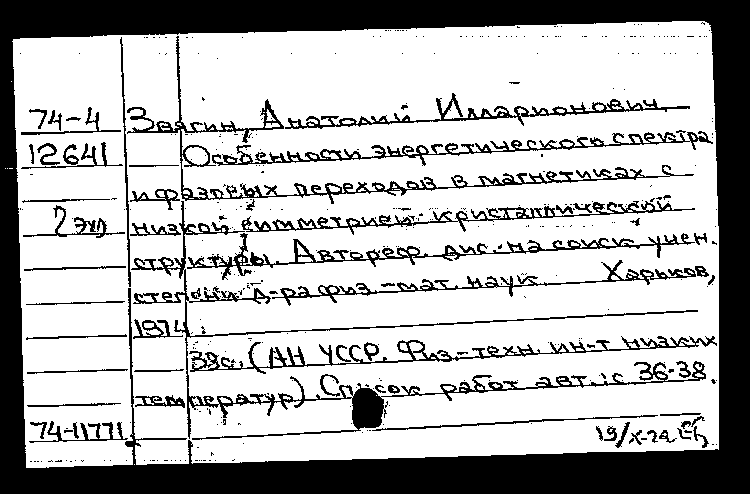 74-4 Звягин, Анатолий Илларионович.
12641 Особенности энергетического спектра
и фазовых переходов в магнетиках с
2 экз низкой симметрией кристаллической
структуры. Автореф. дис. на соиск. учен.
степени д-ра физ.-мат. наук. Харьков,
1974.
38с. (АН УССР. Физ.-техн. ин-т низких
температур). Список работ авт.: с 36-38.
74-11771
19/X-74